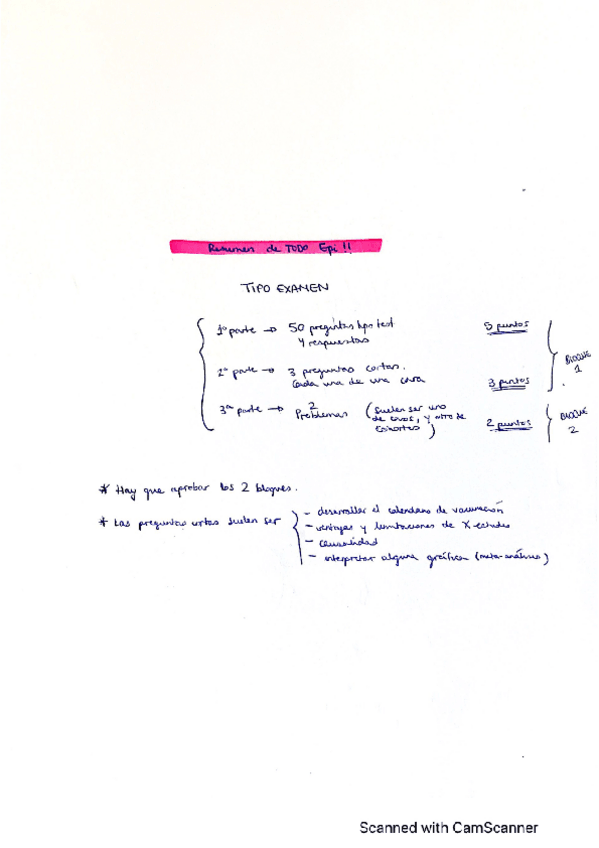 Resumen de TODO Epi!!
TIPO EXAMEN
1º parte → 50 preguntas tipo test
4 respuestas
5 puntos
2º parte → 3 preguntas cortas.
Cada una de una cara
3 puntos
BLOQUE
1
3ª parte → 2
Problemas
(Suelen ser uno
de casos, y otro de
Cohortes)
2 puntos
BLOQUE
2
* Hay que aprobar los 2 bloques.
* Las preguntas cortas suelen ser
- desarrollar el calendario de vacunación
- ventajas y limitaciones de X estudio
- causalidad
- interpretar alguna gráfica (meta-análisis)
Scanned with CamScanner